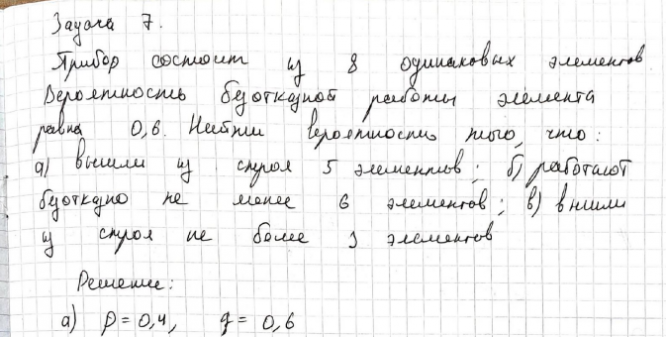 Задача 7.
Прибор состоит из 8 одинаковых элементов
Вероятность безотказной работы элемента
равна 0,6. Найти вероятность того, что:
а) вышли из строя 5 элементов; б) работают
безотказно не менее 6 элементов; в) вышли
из строя не более 3 элементов
Решение:
а) p = 0,4, q = 0,6